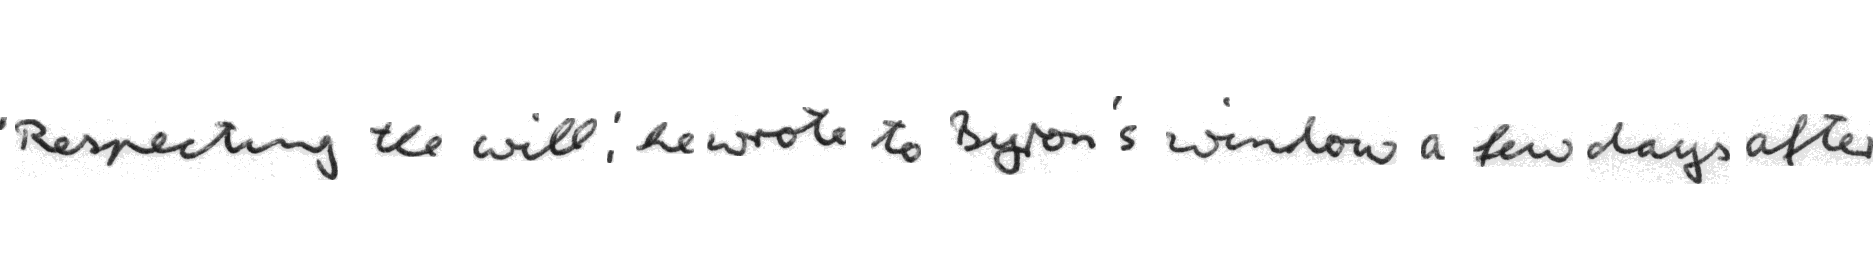 'Respecting the will,' he wrote to Byron's window a few days after